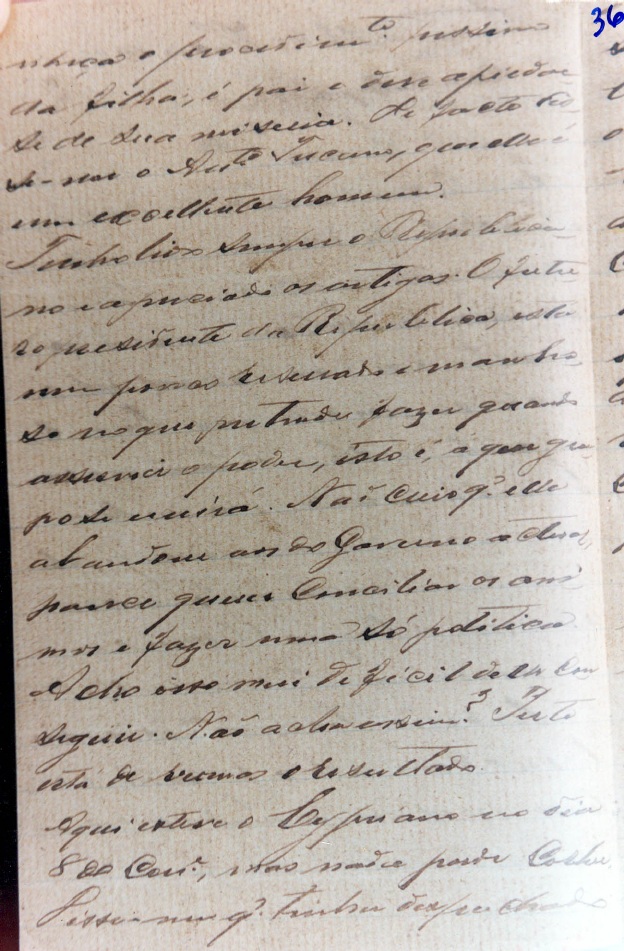 36
o procedim.to pessimo
da filha, é pai e deve apiedar
se de sua miseria. De facto
se-me o Anto Tucano, que elle é
um excellente homem.
Tenho lido sempre o Republica-
no e apreciado os artigos. O futu-
ro presidente da Republica, está
um pouco reservado e manho-
so no que pretende fazer quando
assumir o poder, isto é, a que gru-
po se unirá. Não creio q.' elle
abandone os do Governo actual,
parece querer conciliar os ani-
mos e fazer uma só politica.
Acho isso mui deficil de se con
seguir. Não acha assim? Perto
está de vermos o resultado.
Aqui esteve o Cypriano no dia
8 do Corr.e, mas nada pode colher.
Disse-me q.' tinha despachado